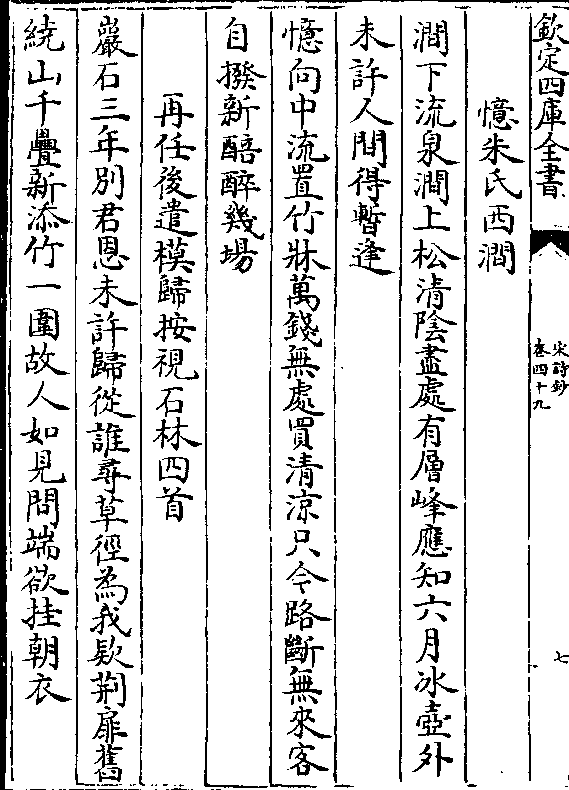 欽定四庫全書
宋詩鈔
卷四十九
七
憶朱氏西澗
澗下流泉澗上松清陰盡處有層峰應知六月冰壺外
未許人間得暫逢
憶向中流置竹牀萬錢無處買清凉只今路斷無來客
自撥新醅醉幾場
再任後遣模歸按視石林四首
巖石三年別君恩未許歸從誰尋草徑為我款荆扉舊
繞山千疊新添竹一圍故人如見問端欲挂朝衣